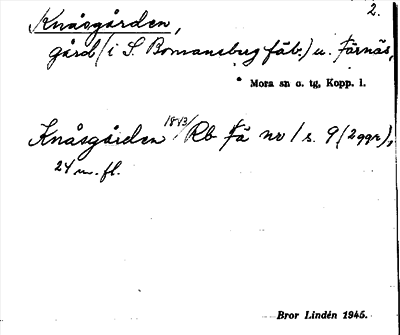 2.
Knåsgården,
gård (i S. Bomansberg fäb.) u. Färnäs,
* Mora sn o. tg, Kopp. l.
Knåsgården 1843/ Rb Fä nr 1 s. 9 (2 ggr),
24 m. fl.
Bror Lindén 1945.